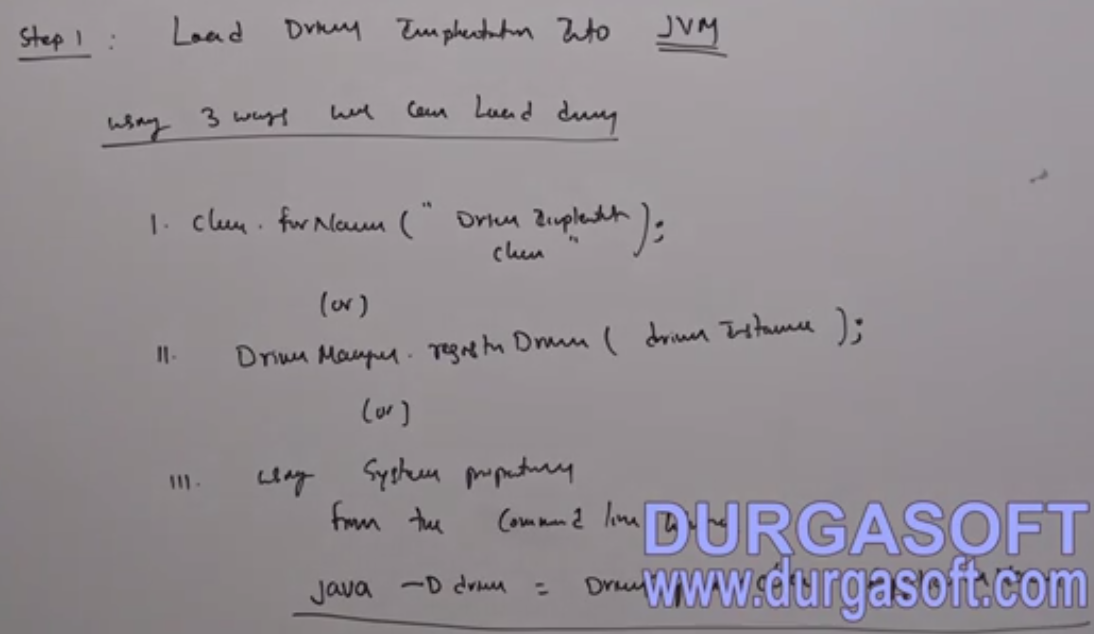 Step 1 : Load Driver Implementation Into JVM
using 3 ways we can Load driver
I. Class.forName("Driver Implementation
class");
(or)
II. DriverManager.registerDriver( driver Instance );
(or)
III. using System properties
from the Command line
DURGASOFT
java -D driver = Driver
www.durgasoft.com